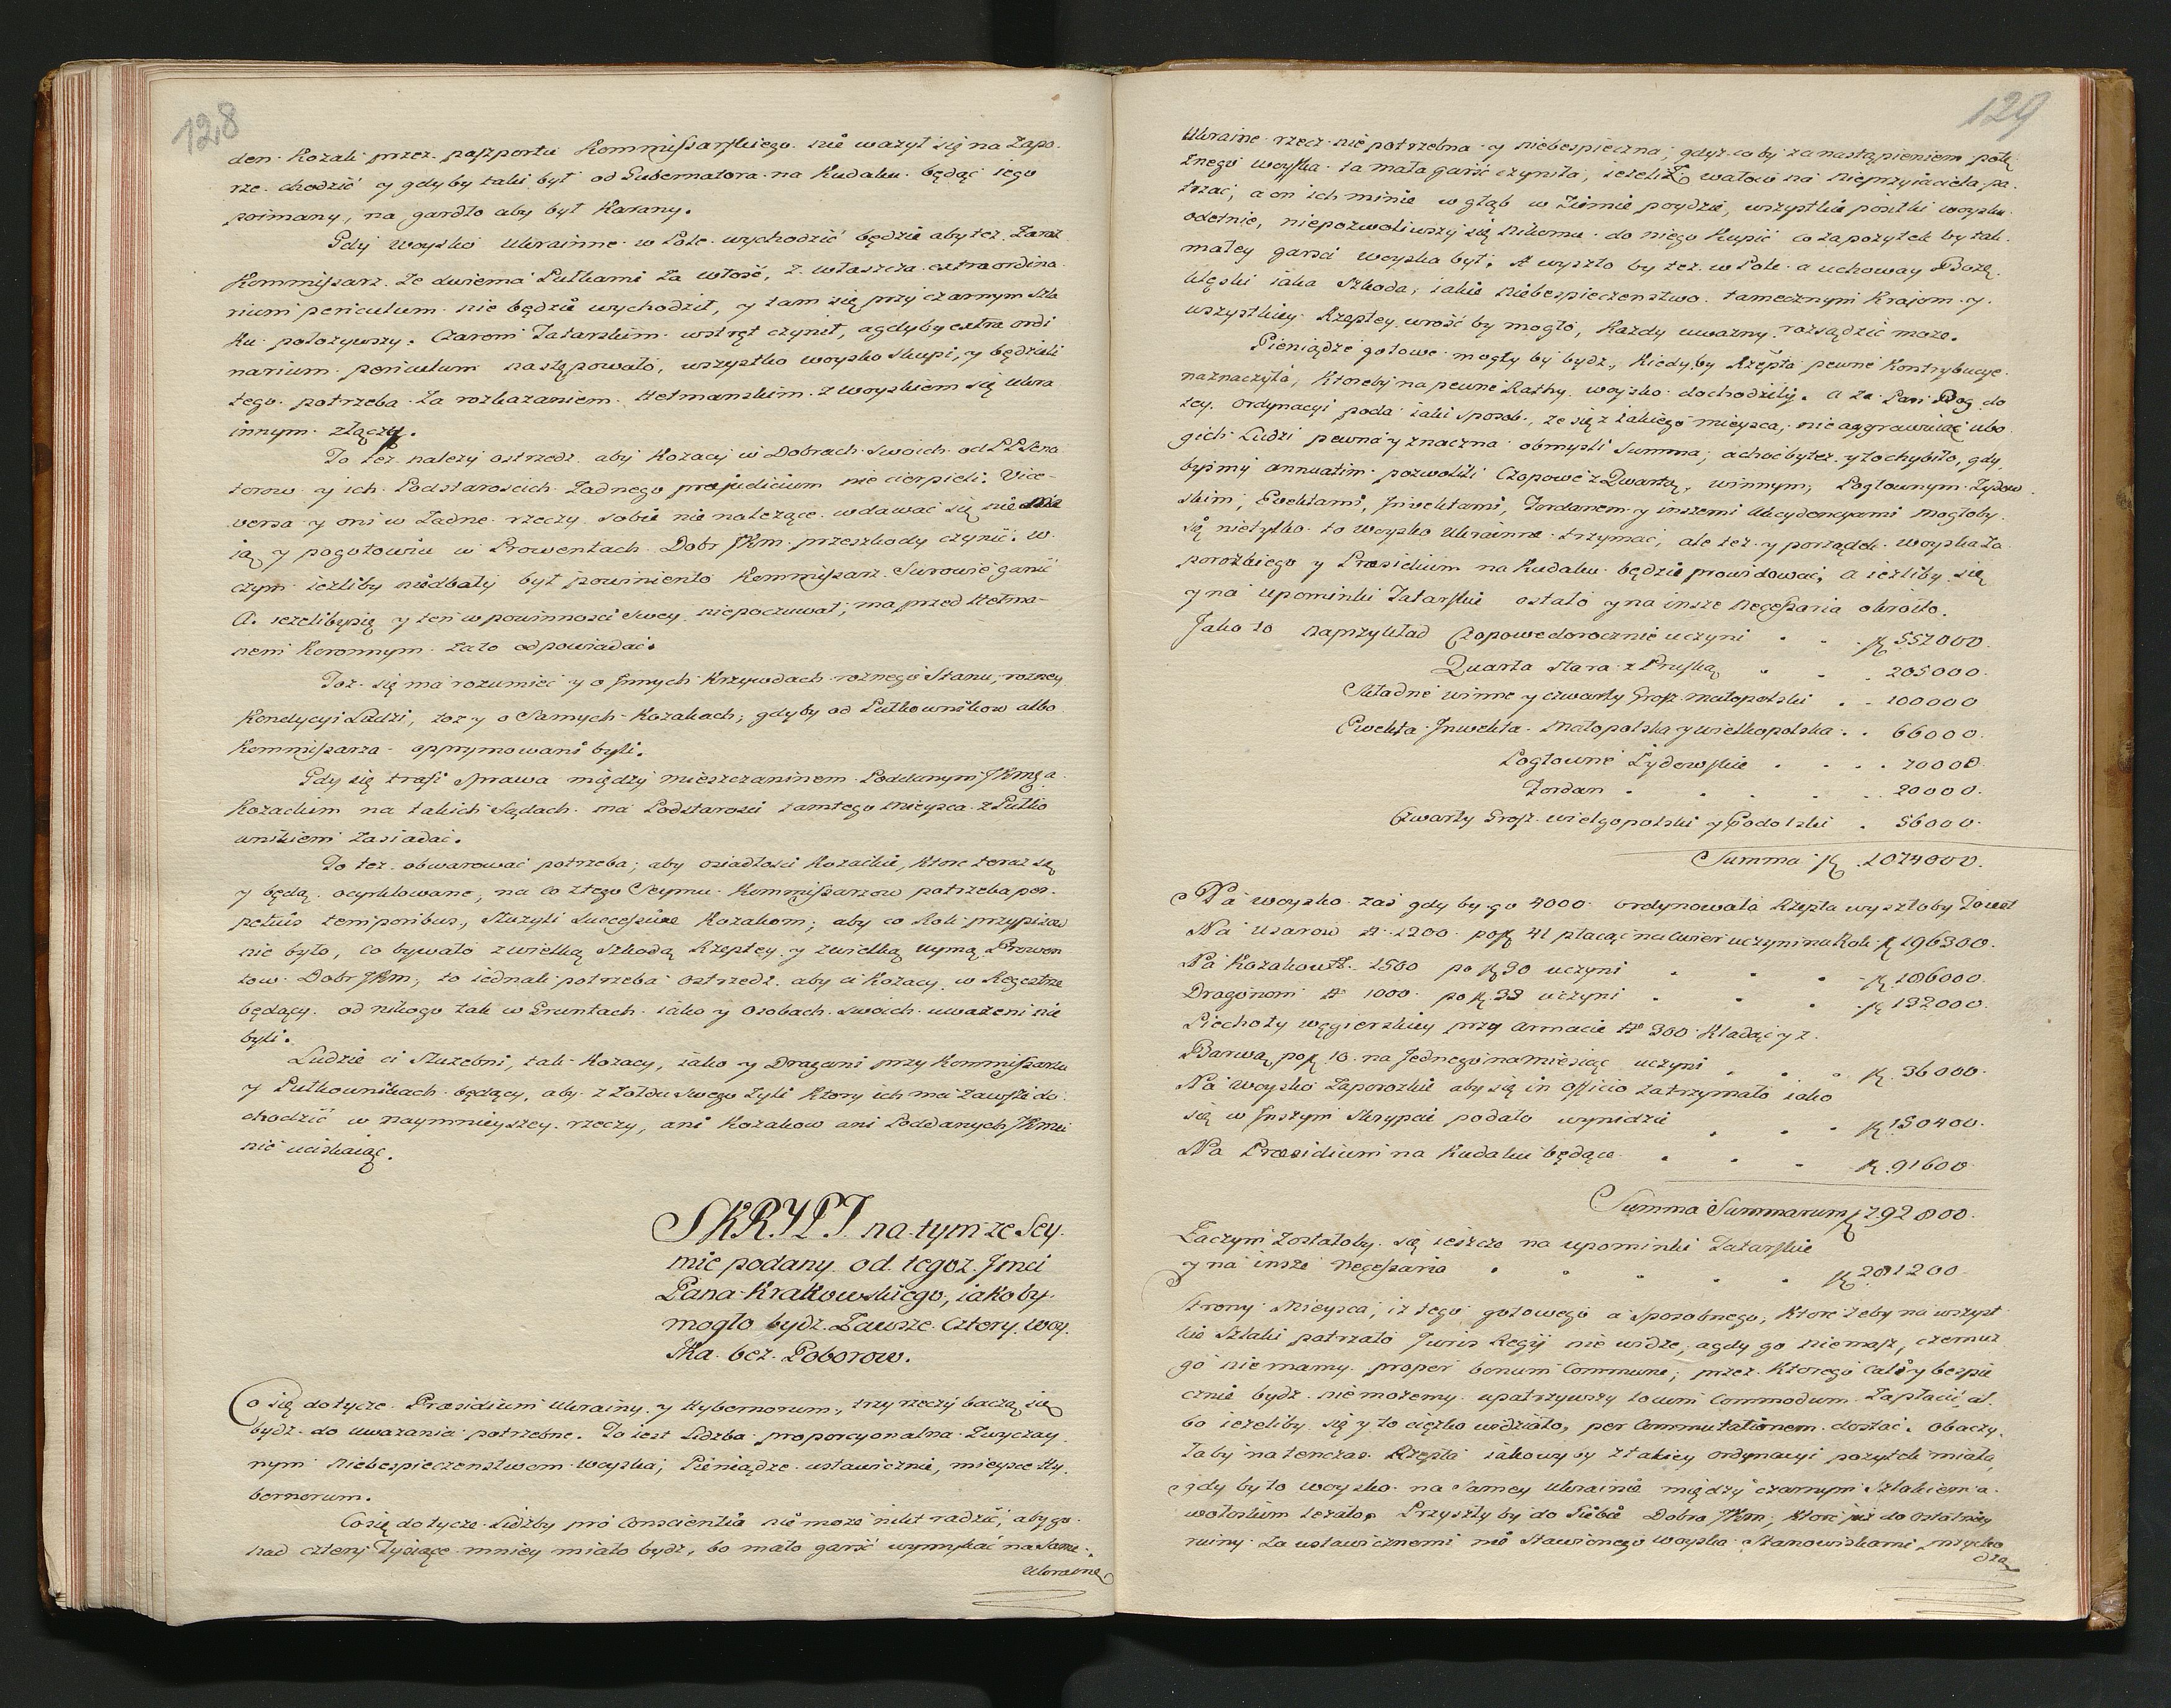 128
den Kozak przez paszportu Kommissarskiego nie ważył się na Zapo-
rze chodzić y gdyby taki był od Gubernatora na Kudaku będąc iego
poimany, na gardło aby był Karany.
Gdy woysko Ukrainne w Pole wychodzić będzie aby też Zaraz
Kommissarz Ze dwiema Pułkami Za włość, z właszcza extraordina
rium periculum nie będzie wychodził, y tam się przy czarnym Szla
Ku położywszy. Czarom Tatarskim wstręt czynił, a gdyby extra ordi
narium periculum następowało, wszystko woysko skupi, y będzieli
tego potrzeba Za rozkazaniem Hetmanskim z Woyskiem się Ukra
innym złączy.
To też należy ostrzedz aby Kozacy w Dobrach swoich od PP Sena
torow y ich Podstarościch Zadnego prejudicium nie cierpieli. Vice-
versa y oni w Zadne rzeczy sobie nie należące wdawać się nie ma
ią y pogotowiu w Prowentach Dobr JKm przeszkody czynić. w
czym ieżliby niedbały był powinien to Kommissarz Surowie ganić
A. ieżeliby się y ten w powinności swey niepoczuwał, ma przed Hetma-
nem Koronnym za to odpowiadać.
Toż się ma rozumieć y o Jnnych Krzywdach rożnego Stanu, rozney
Kondycyi Ludzi, toż y o Samych Kozakach, gdyby od Pułkownikow albo
Kommissarza opprymowani byli.
Gdy się trafi sprawa między mieszczaninem Poddanym JKmą a
Kozackim na takich Sądach ma Podstarości tamtego mieysca z Pułko
wnikiem Zasiadać.
To też obwarować potrzeba, aby osiadłości Kozackie, ktore teraz są
y będą ocyrklowane, na co z tego Seymu Kommissarzow potrzeba per-
petuis temporibus, służyli successive Kozakom; aby co Rok przypisow
nie było, co bywało z wielką szkodą Rzeptey y z wielką uymą Prowen
tow Dobr JKm, to iednak potrzeba ostrzedz aby ci Kozacy w Regestrze
będący od nikogo tak w Gruntach iako y Osobach swoich uważeni nie
byli.
Ludzie ci Służebni, tak Kozacy, iako y Dragani przy Kommissarzu
y Pułkownikach będący, aby z Żołdu swego żyli Ktory ich ma Zawsze do-
chodzić w naymnieyszey rzeczy, ani Kozakow ani Poddanych JKmci
nie uciskaiąc.
SKRYPT na tymze Sey-
mie podany od tegoz Jmci
Pana Krakowskiego, iakoby
mogło bydz Zawsze cztery woy-
ska bez Poborow.
Co się dotycze Præsidium Ukrainy y Hybernorum, trzy rzeczy baczą się
bydz do uwazania potrzebne. To iest Lidzba proporcyonalna Zwyczay
nym niebespieczenstwom woyska; Pieniądze ustawicznie, mieysce Hy-
bernorum.
Co się dotycze Lidzby pro Conscientia nie może nikt radzić, aby go
nad cztery Tysiące mniey miało bydz, bo mało garść wymykać na Same
Ukraine
129
Ukraine rzecz niepotrzebna y niebespieczna, gdyz coby za nastąpieniem potę
żnego woyska ta mała garść czyniła, ieżeli Z wałow na nieprzyiaciela pa-
trzać, a on ich minie w głąb w Ziemie poydzie, wszystkie posiłki woysku
odetnie, niepozwoliwszy się nikomu do niego kupić co za pożytek by tak
małey garści woyska był. A wyszło by też w Pole a uchoway Bożę
klęski iaka Szkoda, iakie niebespieczenstwo tamecznym Krajom y
wszystkiey Rzeptey urość by mogło, Każdy uważny rozsądzić może.
Pieniądze gotowe mogły by bydz, Kiedyby Rzepta pewne Kontrybucye
naznaczyła, Ktoreby na pewne Rathy woysko dochodziły. a ze Pan Bog do
tey ordynacyi poda taki sposob, ze się z takiego mieysca, nie aggrawuiąc ubo
gich Ludzi pewna y znaczna obmysli Summa; a choć by też y to chybiło, gdy
byśmy annuatim pozwolili Czopowe z Quartą, winnym, Pogłownym Żydow
skim, Ewektami, Jnwektami, Jordanem y inszemi Akcydencyami mogłoby
się nietylko to Woysko Ukrainne trzymać, ale też y porządek woyska Za
porożkiego y Præsidium na Kudaku będzie prowidować, a ieżliby się
y na upominki Tatarskie ostało y na insze necessaria okroiło.
Jako to naprzykład Czopowe dorocznie uczyni . . f 557000.
Quarta Stara z Pruską . . . 205000.
Składne winne y czwarty Grosz małopolski . . 100000
Ewekta Jnwekta Małopolska y wielkopolska . . 66000.
Pogłowne Żydowskie . . . . 70000.
Jordan . . . . . 20000.
Czwarty Grosz wielgopolski y Podolski . 56000.
Summa f 1074000.
Na woysko zas gdy by go 4000 ordynowała Rzepta wyszłoby Zawsz
Na Usarow # 1200 po f 41 płacąc na cwierć uczyni na Rok f 196800.
Na Kozakow #. 1500 po f 30 uczyni . . . f 186000.
Dragonom # 1000 po f 33 uczyni . . . f 132000.
Piechoty węgierskiey przy armacie # 300 Kładąc y z
Barwą po f 10 na Jednego na miesiąc uczyni . . . f 36000.
Na Woysko Zaporozkie aby się in Officio zatrzymało iako
się w Jnszym Skrypcie podało wynidzie . . . f 150400.
Na Præsidium na Kudaku będące . . . f 91600
Summa Summarum f 792800.
Zaczym Zostałoby się ieszcze na upominki Tatarskie
y na insze necessaria . . . . . f 281200
Strony mieysca, iz tego gotowego a sposobnego, Ktore żeby na wszyst
kie Szlaki patrzało Juris Regij nie widze, a gdy go niemasz, czemuz
go nie mamy proper bonum Commune, przez Ktorego cali y bespie
cznie bydz niemożemy upatrzywszy locum Commodum Zapłacić al-
bo ieżeliby się y to ciężko widziało, per Commutationem dostać. obaczy-
łaby natenczas Rzepta iakowy by z takiey ordynacyi pożytek miała,
gdy by to woysko na samey Ukrainie między czarnym Szlakiem a
wołoskim leżało. Przyszły by do siebie Dobra JKm, Ktore już do ostatniey
ruiny za ustawicznemi nie Stawionego woyska Stanowiskami przycho
dzą